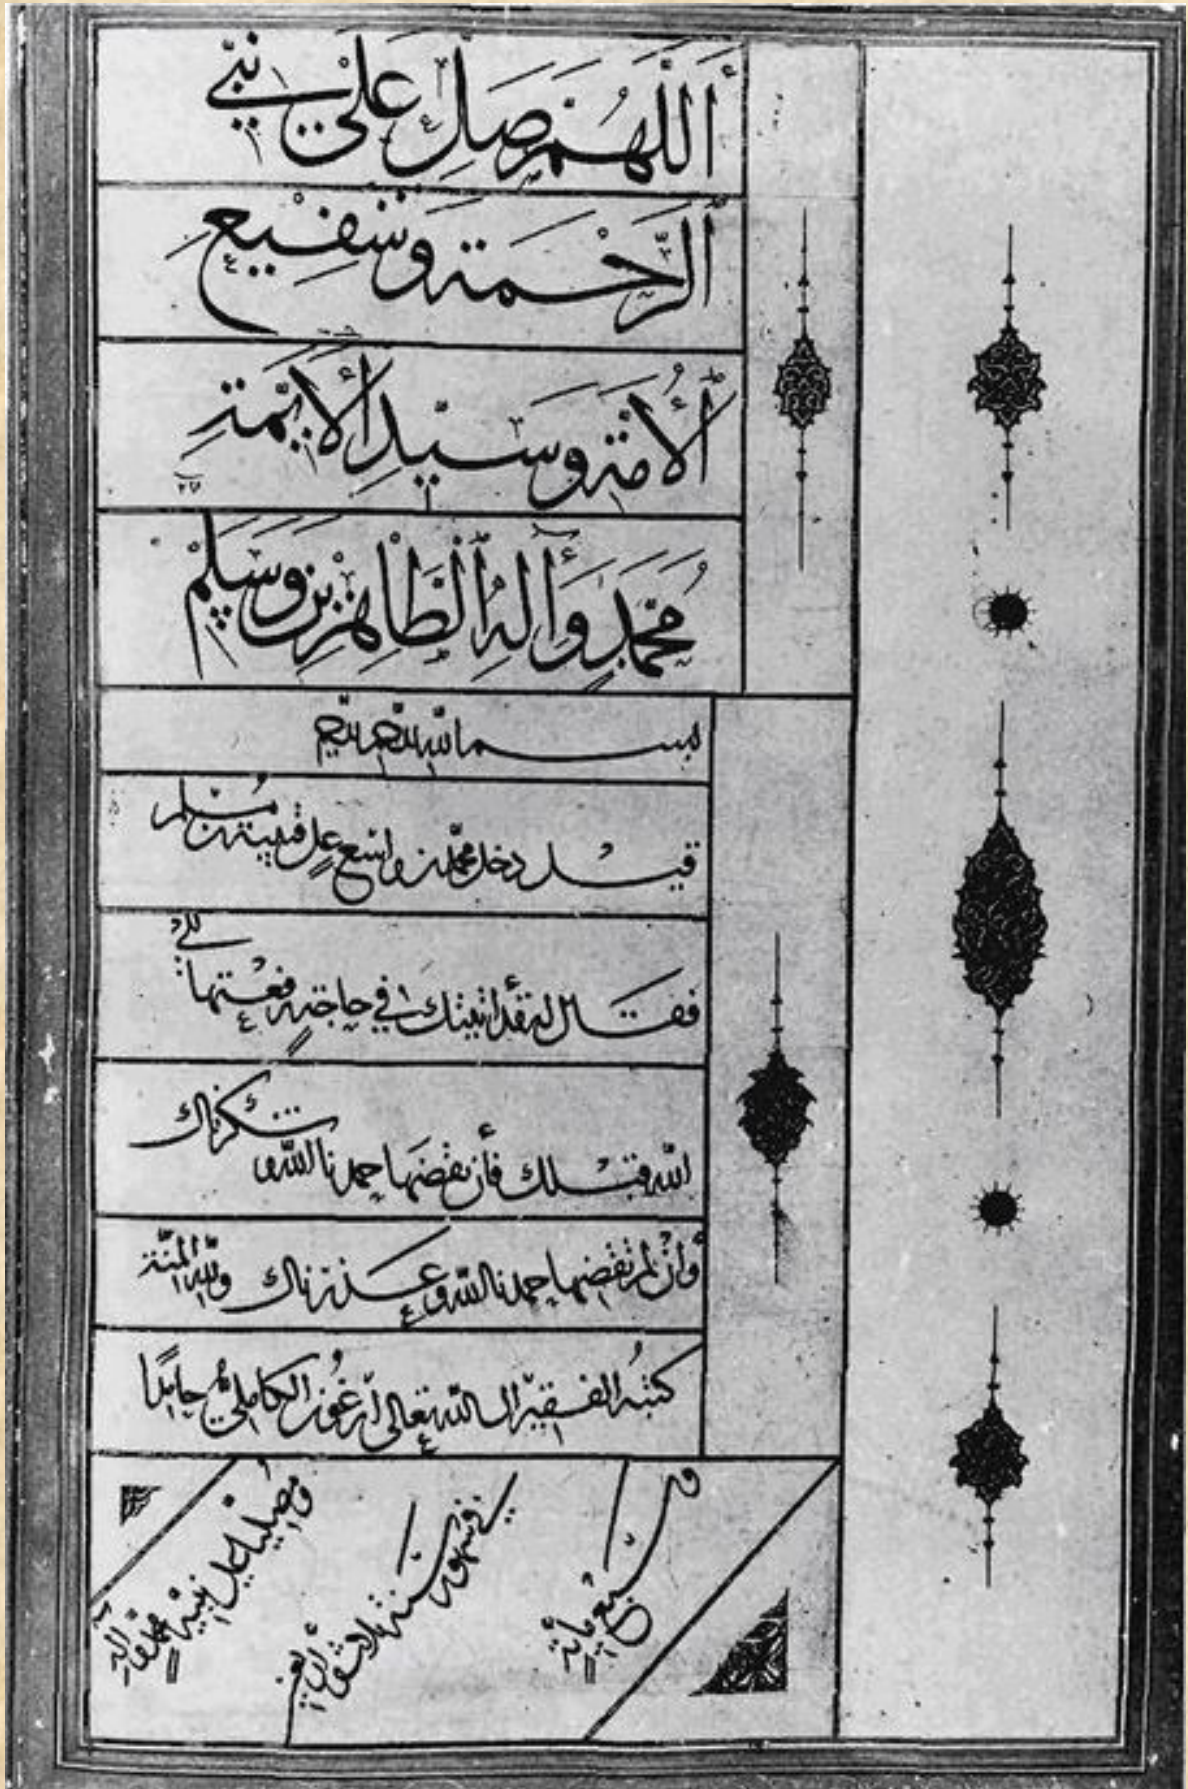 أَللّٰهُمَّ صَلِّ عَلٰى نَبِيِّ
ٱلرَّحْمَةِ وَشَفِيعِ
ٱلْأُمَّةِ وَسَيِّدِ ٱلْأَئِمَّةِ
مُحَمَّدٍ وَآلِهِ ٱلطَّاهِرِينَ وَسَلِّمْ
بسم الله الرحمن الرحيم
قيل دخل محمد بن واسع على قتيبة بن مسلم
فقال له قد اتيتك في حاجة رفعتها الى
الله قبلك فان تقضها حمدنا الله و شكرناك
وان لم تقضها حمدنا الله و عذرناك ولله المنة
كتبه الفقير الى الله تعالى أرغون الكاملي حامدا
ومصليا على نبيه محمد وآله
في شهور سنة ثلاث وأربعين
وسبع مائة